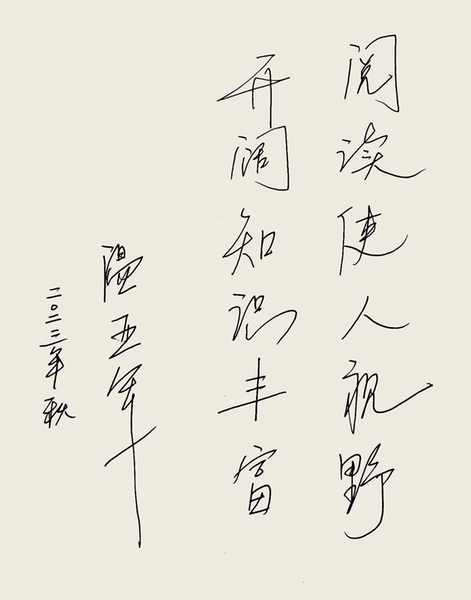 阅读使人视野
开阔知识丰富
温亚军
二〇二三年秋